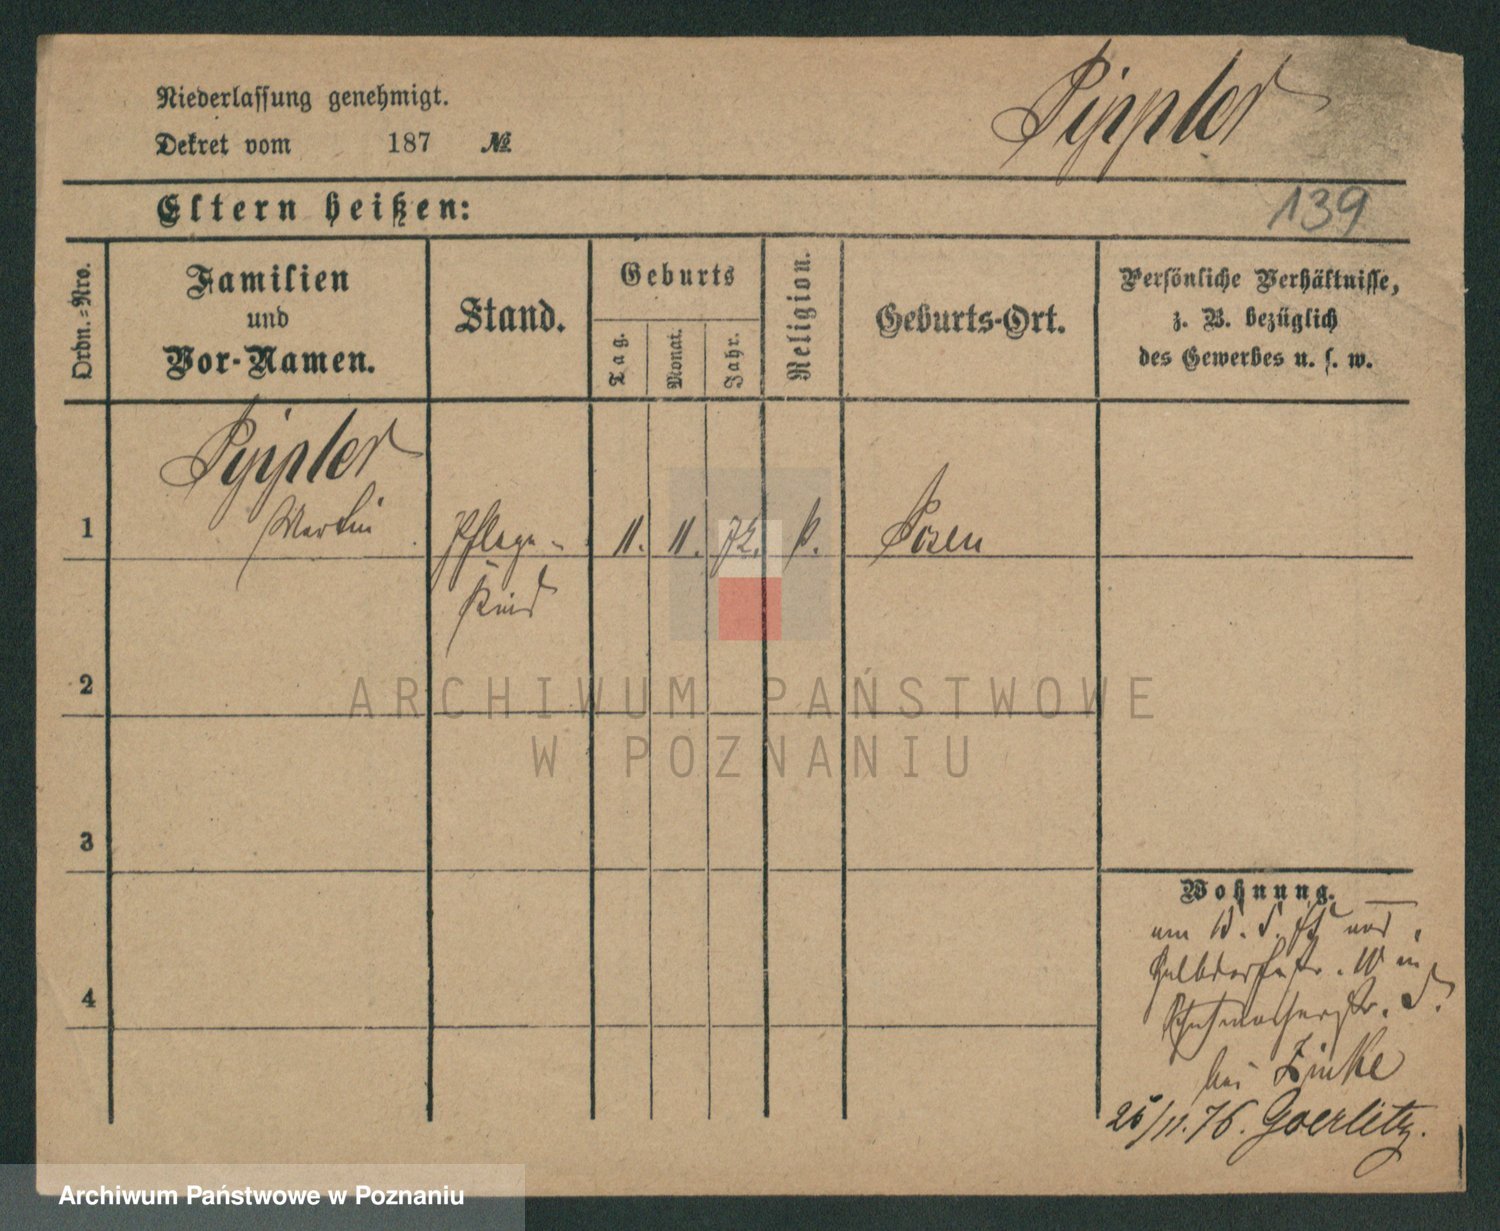 Niederlassung genehmigt.
Dekret vom 187 №
Pippler
139
Eltern heißen:
Ordn.=Nro.
Familien
und
Vor-Namen.
Stand.
Geburts
Tag.
Monat.
Jahr.
Religion.
Geburts-Ort.
Persönliche Verhältnisse,
z. B. bezüglich
des Gewerbes u. s. w.
Pippler
Martin
1
Pflege-
Kind
11. 11. 72. k. Posen
2
ARCHIWUM PAŃSTWOWE
W POZNANIU
3
Wohnung.
4
bei Zinke
25/11. 76. Goerlitz.
Archiwum Państwowe w Poznaniu